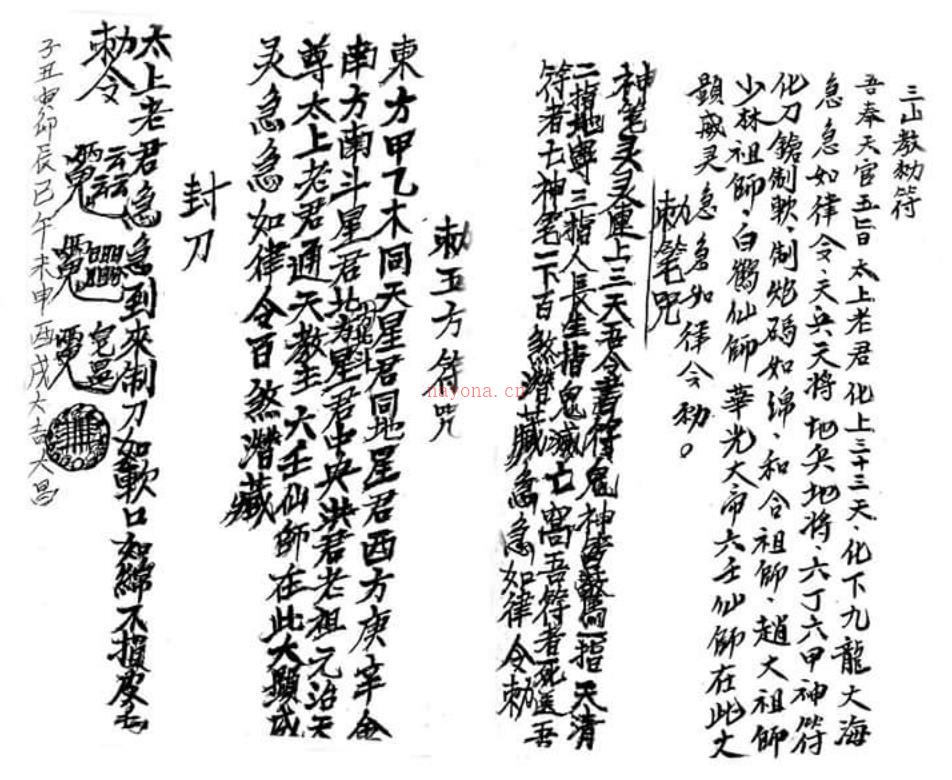 三山教勅符
吾奉天官五旨太上老君化上三十三天、化下九龍大海
急急如律令、天兵天將、地兵地將、六丁六甲神符
化刀鎗制軟、制炮碼如綿、和合祖師、趙大祖師
少林祖師、白鶴仙師 華光大帝六壬仙師在此大
顯威灵 急急如律令勅。
勅筆咒
神笔灵灵運上三天吾令書符鬼神皆驚一指天清
二指地寧三指人長生指鬼滅亡窩吾符者死逢吾
符者亡神笔一下百煞潜藏急急如律令勅
勅五方符咒
東方甲乙木同天星君同地星君西方庚辛金
南方南斗星君北方星君中央洪君老祖元治天
尊太上老君通天教主六壬仙師在此大顯威
灵急急如律令百煞潜藏
封刀
太上老君急急到來制刀如軟口如綿不損皮毛
勅令
子丑寅卯辰巳午未申酉戌大吉大昌
nayona.cn